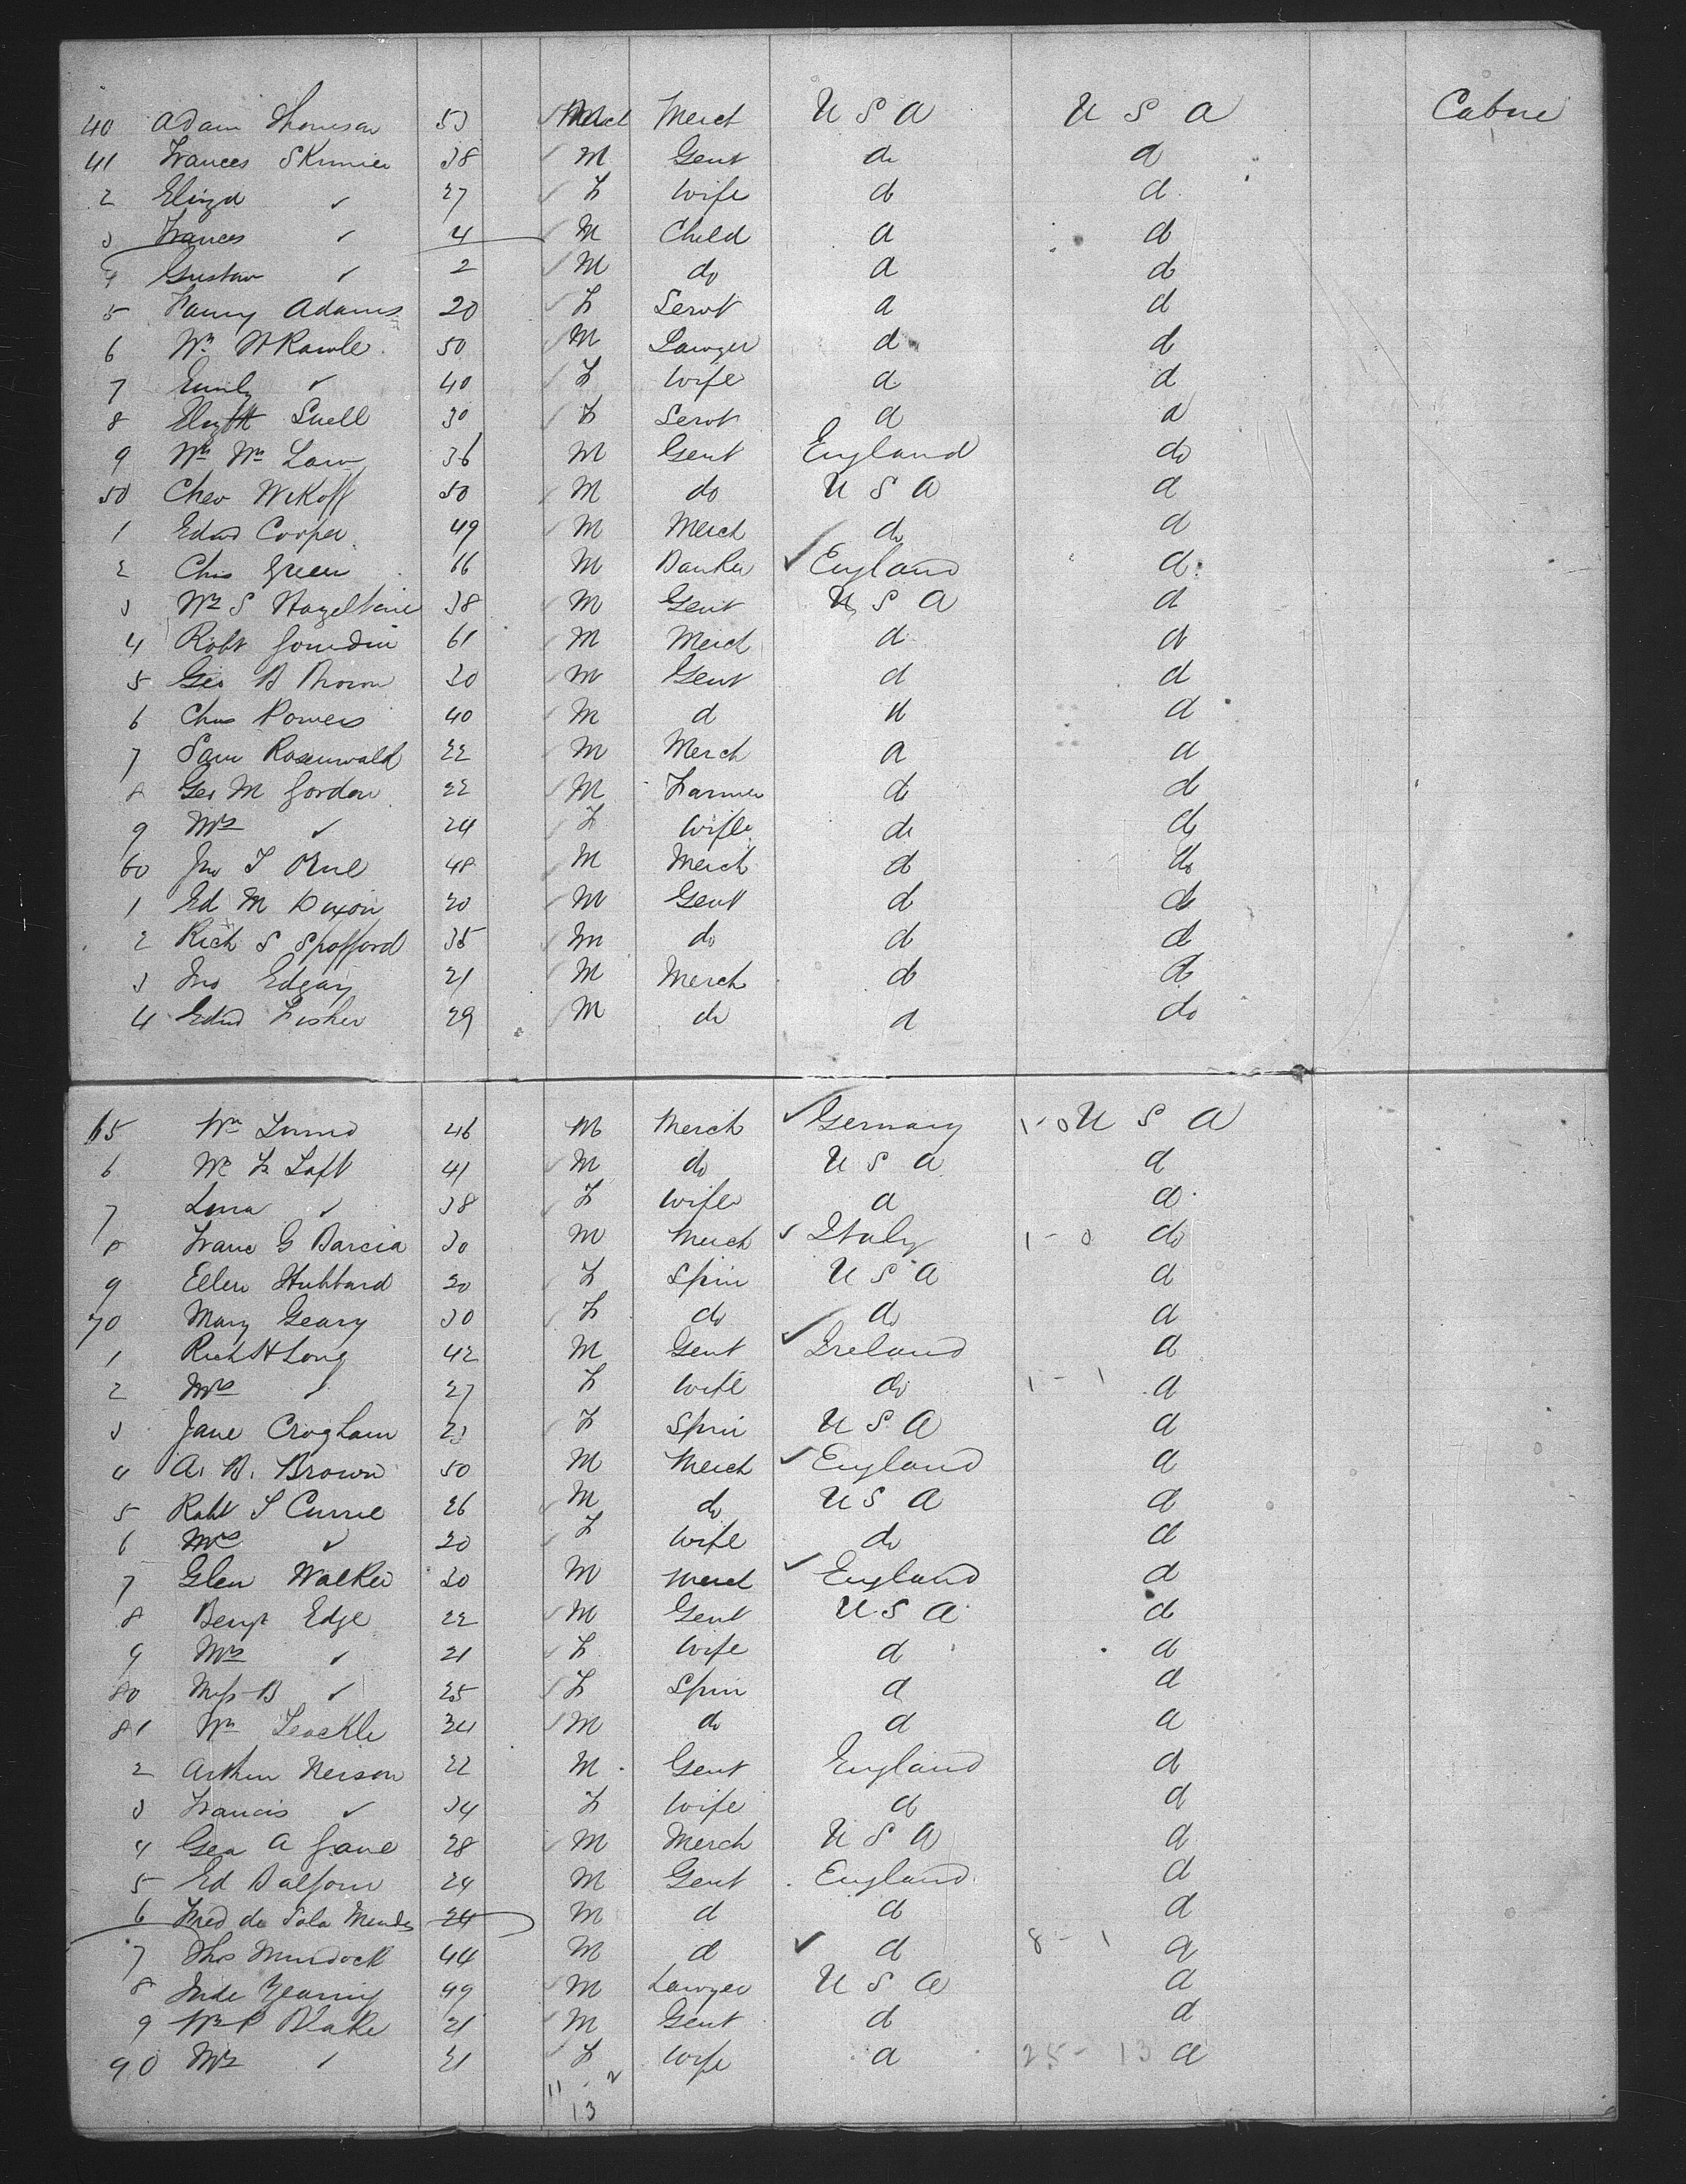 40 Adam Thomson 53 M Merch U S A U S A Cabin
41 Frances Skinner 38 M Gent do do
2 Eliza " 27 F Wife do do
3 Frances " 4 M Child do do
4 Gustav " 2 M do do do
5 Fanny Adams 20 F Servt do do
6 Wm H Rawle 50 M Lawyer do do
7 Emily " 40 F Wife do do
8 Elizth Snell 30 F Servt do do
9 Wm Wm Law 36 M Gent England do
50 Chev Wikoff 50 M do U S A do
1 Edwd Cooper 49 M Merch do do
2 Chas Green 66 M Banker England do
3 Wm S Hazeltine 38 M Gent U S A do
4 Robt Gourdin 61 M Merch do do
5 Geo B Brown 30 M Gent do do
6 Chas Powers 40 M do do do
7 Sam Rosenwald 22 M Merch do do
8 Geo M Gordon 22 M Farmer do do
9 Mrs " 24 F Wife do do
60 Jno T 48 M Merch do do
1 Ed M 20 M Gent do do
2 Rich S Spofford 35 M do do do
3 Jno Edgar 21 M Merch do do
4 Edwd Fisher 29 M do do do
65 Wm 46 M Merch Germany 1-0 U S A
6 Wm F Taft 41 M do U S A do
7 Lena " 38 F Wife do do
8 Franc G Barcia 30 M Merch Italy 1-0 do
9 Ellen Hubbard 20 F Spin U S A do
70 Mary Geary 30 F do do do
1 Rich H Long 42 M Gent Ireland do
2 Mrs " 27 F Wife do 1-1 do
3 Jane Crogham 23 F Spin U S A do
4 A. B. Brown 50 M Merch England do
5 Robt S Currie 26 M do U S A do
6 Mrs " 20 F Wife do do
7 Glen Walker 30 M Merch England do
8 Benj Edge 22 M Gent U S A do
9 Mrs " 21 F Wife do do
80 Miss B " 25 F Spin do do
81 Wm Teackle 34 M do do do
2 Arthur Neison 22 M Gent England do
3 Francis " 34 F Wife do do
4 Geo A Gane 28 M Merch U S A do
5 Ed Balfour 24 M Gent England do
6 Fred de Sola Mendes 24 M do do do
7 Thos Murdock 44 M do do 8-1 do
8 49 M Lawyer U S A do
9 Wm P Blake 21 M Gent do do
90 Mrs " 21 F Wife do 25-13 do
11 - 2
13